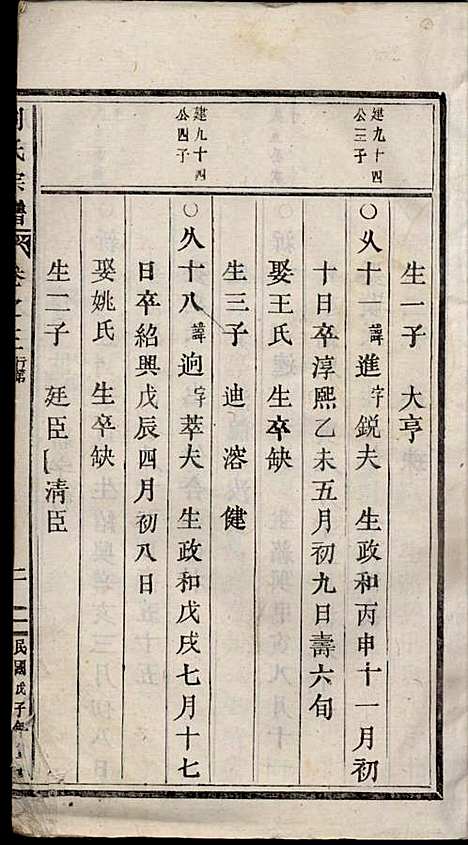 生一子 大亨
建九十四
公三子
○乆十一諱進字鋭夫 生政和丙申十一月初
十日卒淳熙乙未五月初九日壽六旬
娶王氏 生卒缺
生三子 迪 溶 健
建九十四
公四子
○乆十八諱迥字萃夫 生政和戊戌七月十七
日卒紹興戊辰四月初八日
娶姚氏 生卒缺
生二子 廷臣 清臣
氏宗譜 卷之三 行第 民國戊子年